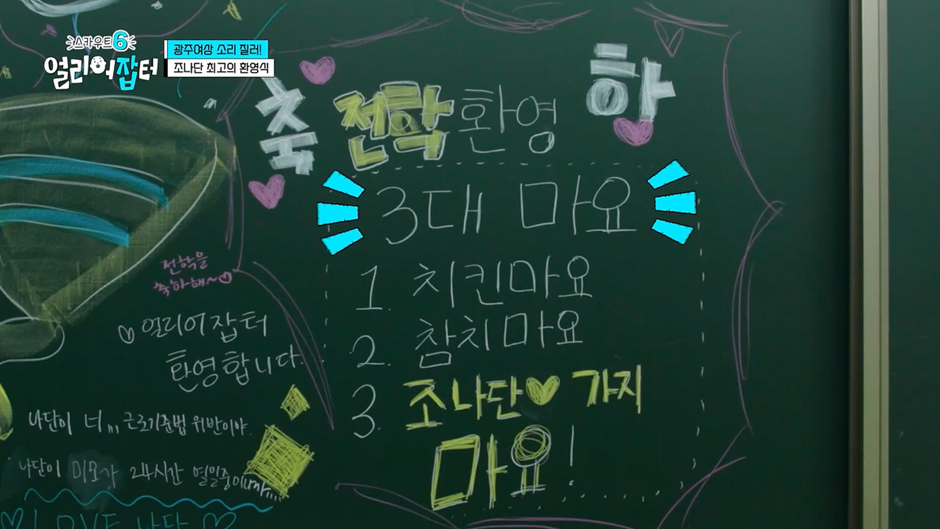 스카우트6
얼리어잡터
광주여상 소리 질러!
조나단 최고의 환영식
축 전학 환영 하
3대 마요
1. 치킨마요
2. 참치마요
3. 조나단♥ 가지
마요!
전학을
축하해~♡
♡얼리어잡터
환영합니다.
나단이 너,,, 근로기준법 위반이야.
나단이 미모가 24시간 열일중이니까,,,
♡LOVE 나단♡